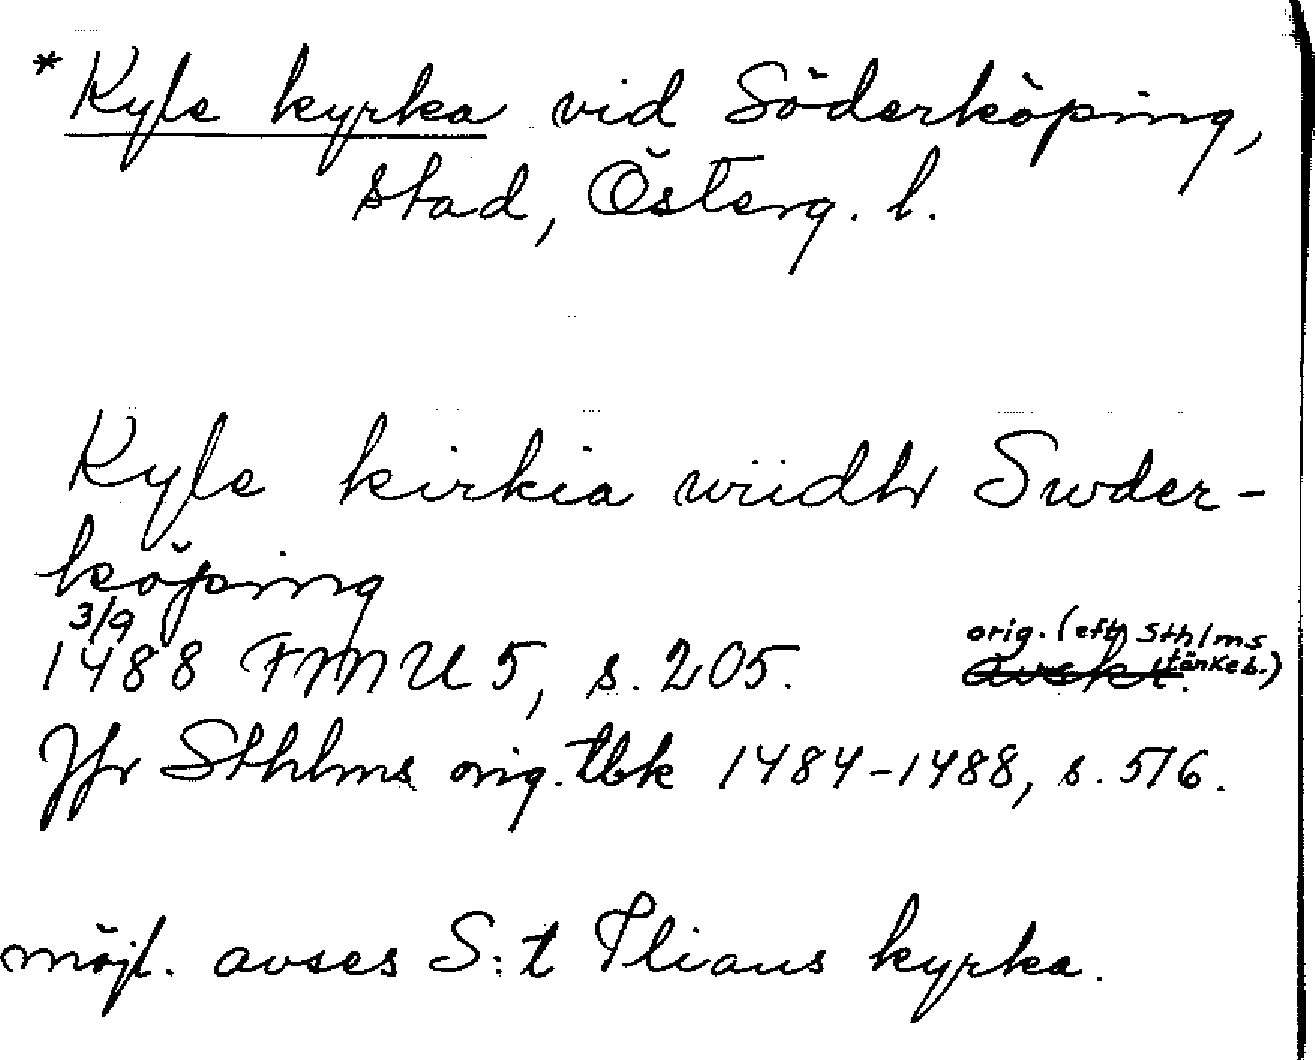 *Kyle kyrka vid Söderköping,
stad, Österg. l.
Kyle kirkia wiidhr Swder-
köping
3/9
1488 FMU 5, s. 205.
orig. (eft Sthlms
tänkeb.)
avskr.
Jfr Sthlms orig. tbk 1484-1488, s. 516.
möjl. avses S:t Ilians kyrka.